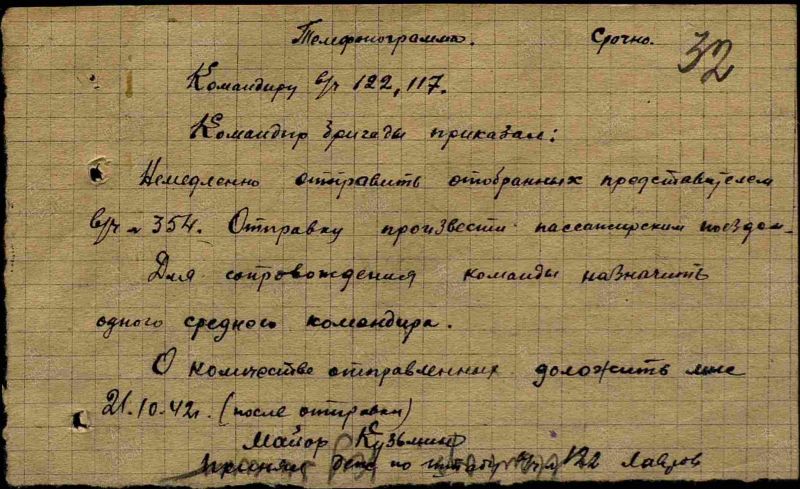 Телефонограмма. Срочно. 32
Командиру в/ч 122, 117.
Командир бригады приказал:
Немедленно отправить отобранных представителем
в/ч № 354. Отправку произвести пассажирским поездом.
Для сопровождения команды назначить
одного среднего командира.
О количестве отправленных доложить мне
21.10.42г. (после отправки)
Майор Кузьмин
Принял деж по штабу в/ч № 122 Лавров